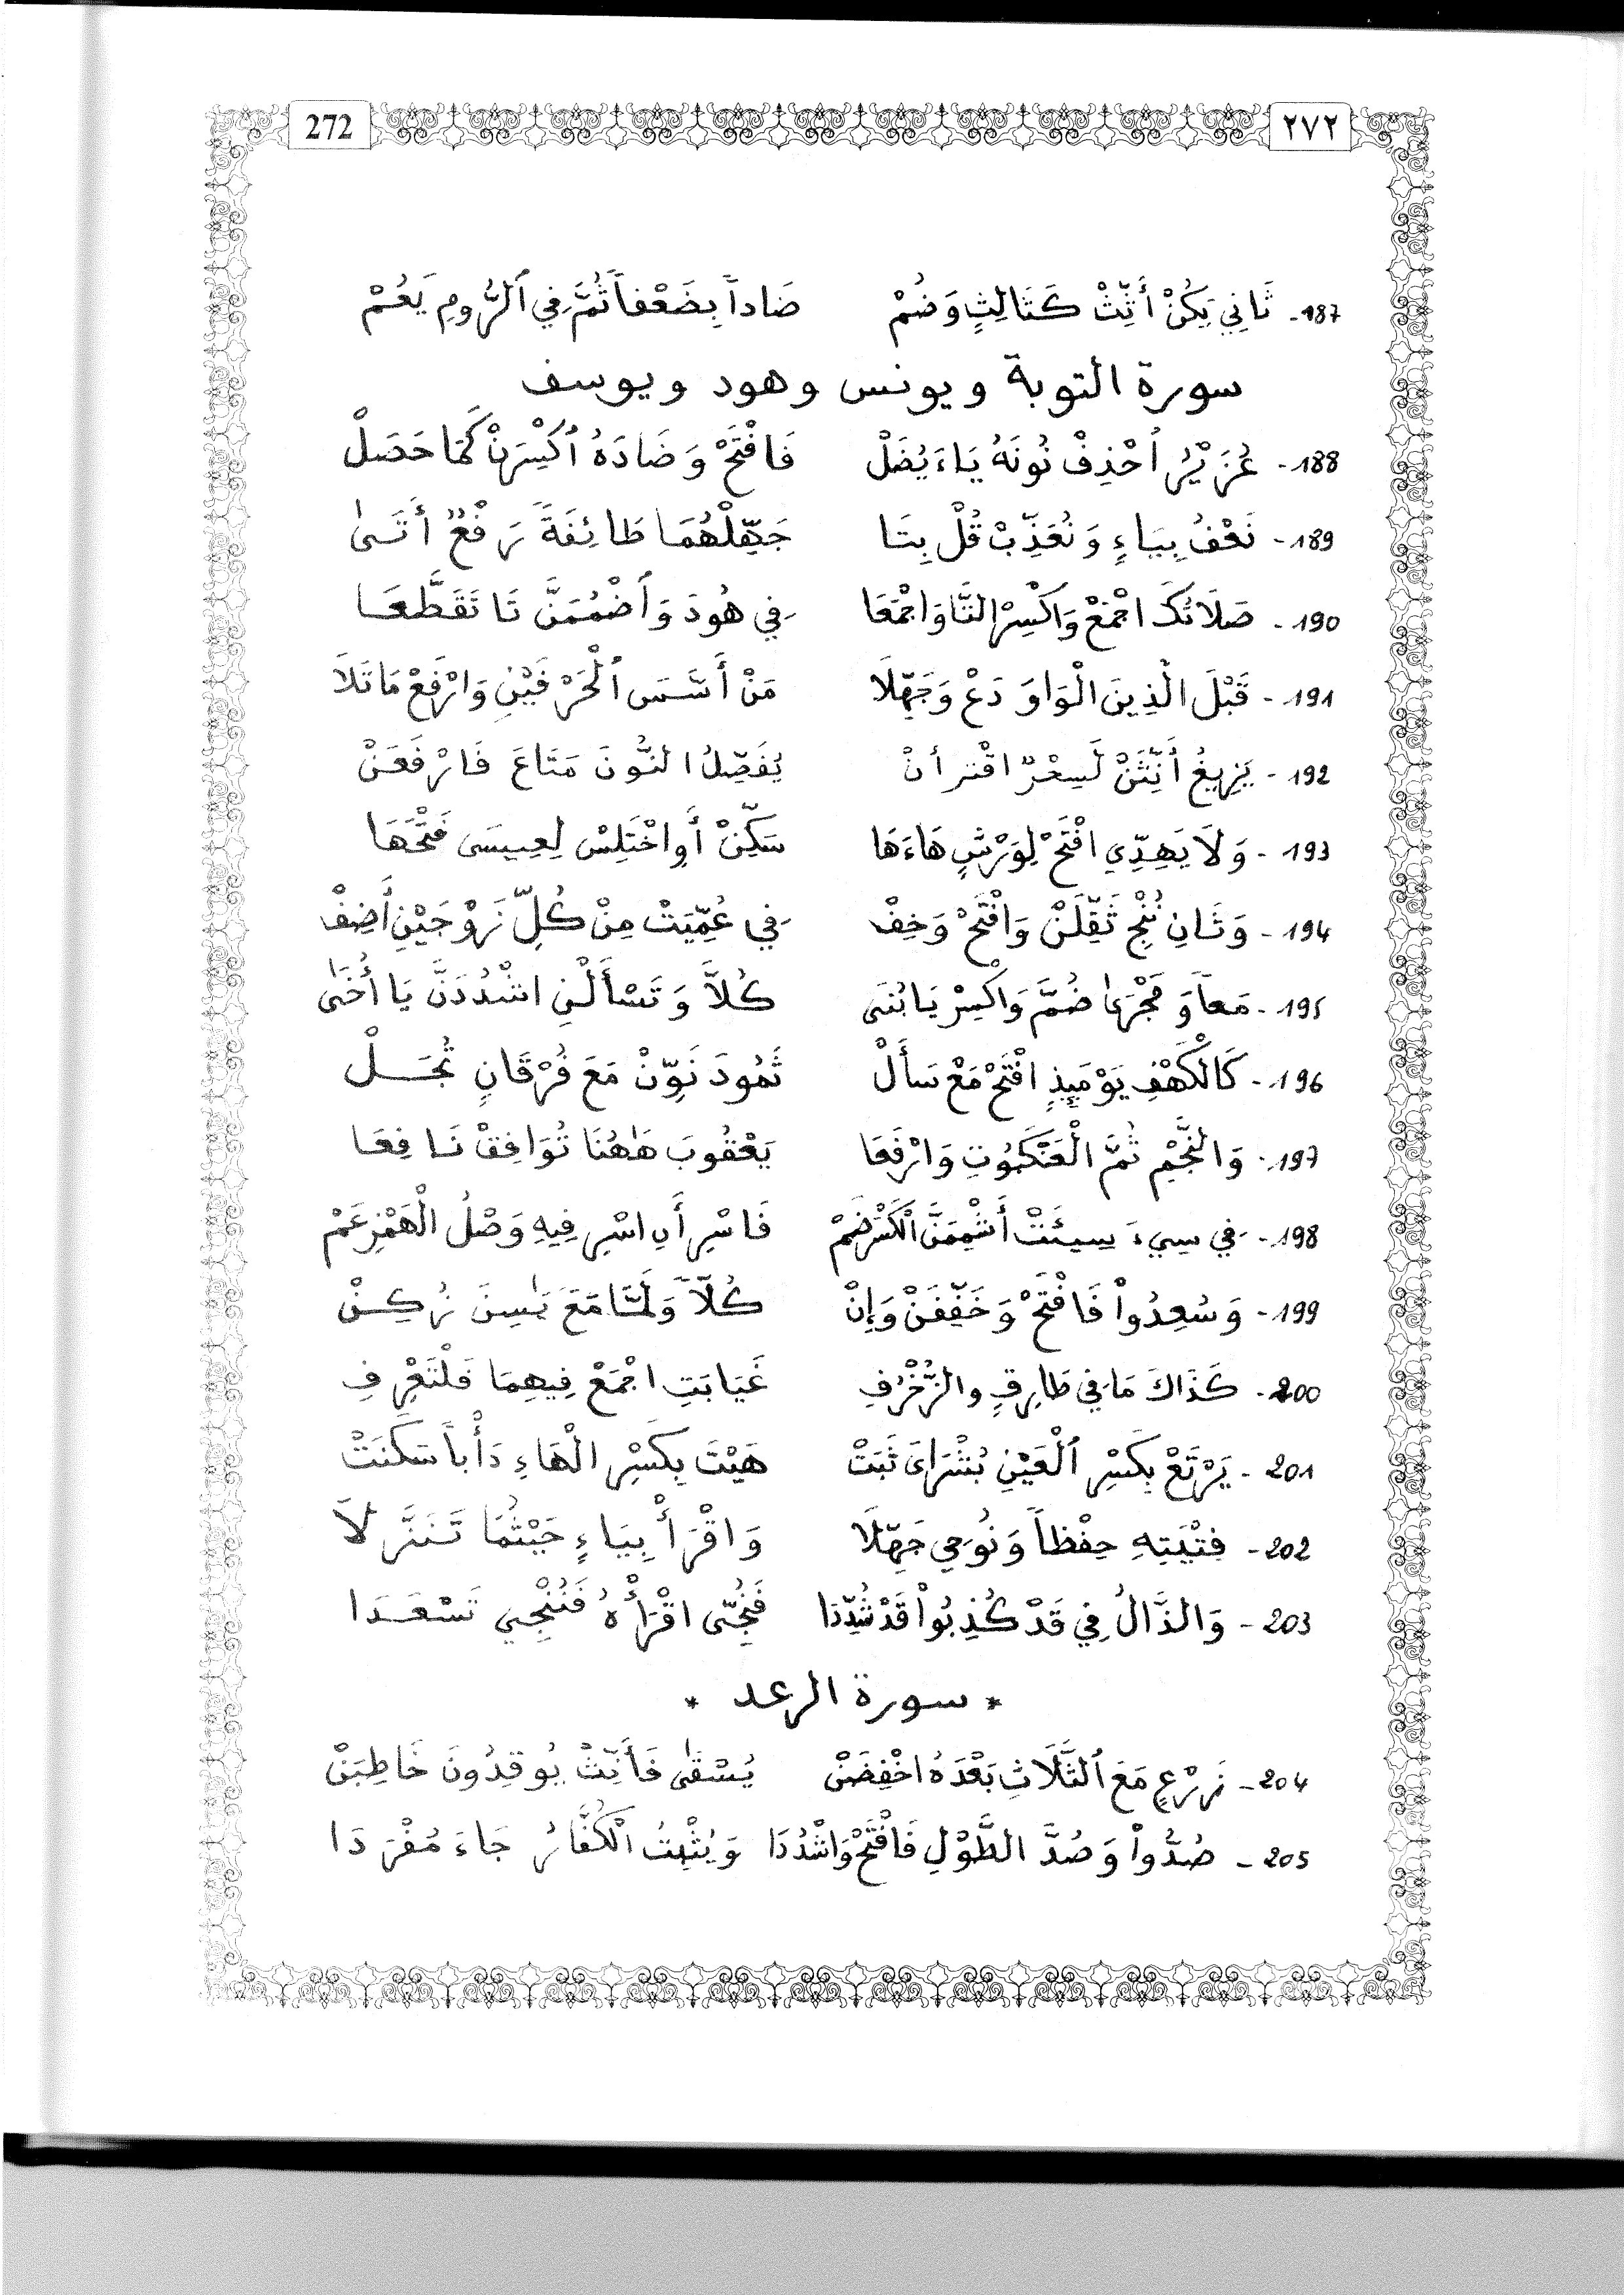 272 ٢٧٢
187- ثَانِي يَكُنْ أَنِّثْ كَثَالِثٍ وَضُمْ ضَاداً بِضَعْفاً ثُمَّ فِي ٱلرُّومِ يَعُمْ
سورة التوبة ويونس وهود ويوسف
188- عُزَيْرُ ٱحْذِفْ نُونَهُ يَاءَ يُضَلْ فَافْتَحْ وَضَادَهُ ٱكْسِرَنْ كَمَا حَصَلْ
189- نَعْفُ بِيَاءٍ وَنُعَذِّبْ قُلْ بِتَا جَهِّلْهُمَا طَائِفَةَ رَفْعٌ أَتَىٰ
190- صَلَاتُكَ اجْمَعْ وَاكْسِرْ التَّا وَاجْمَعَا فِي هُودَ وَٱضْمُمَنَّ تَا تَقَطَّعَا
191- قَبْلَ الَّذِينَ الْوَاوَ دَعْ وَجَهِّلَا مَنْ أَسَّسَ ٱلْحَرْفَيْنِ وَارْفَعْ مَا تَلَا
192- يَزِيغُ أَنِّثَنْ لَسِحْرٌ اقْتر أنْ يُفَصِّلُ النُّونَ مَتَاعَ فَارْفَعَنْ
193- وَلَا يَهِدِّي افْتَحْ لِوَرْشٍ هَاءَهَا سَكِّنْ أَوِ اخْتَلِسْ لِعِيسَى فَتْحَهَا
194- وَثَانِ نُنْجِ ثَقِّلَنْ وَافْتَحْ وَخِفْ فِي عُمِّيَتْ مِنْ كُلِّ زَوْجَيْنِ أَضِفْ
195- مَعاً وَ مَجْرَىٰ ضُمَّ وَاكْسِرْ يَا بُنَيَ كُلّاً وَتَسْأَلْنِ اشْدُدَنَّ يَا أُخَىٰ
196- كَالْكَهْفِ يَوْمَئِذٍ افْتَحْ مَعْ سَأَلْ ثَمُودَ نَوِّنْ مَعَ فُرْقَانٍ تُجَلْ
197- وَالنَّجْمِ ثُمَّ الْعَنْكَبُوتِ وَارْفَعَا يَعْقُوبَ هَٰهُنَا تُوَافِقْ نَافِعَا
198- فِي سِيءَ سِيئَتْ أَشْمِمَنَّ الْكَسْرَ ضَمْ فَاسْرِ أَنِ اسْرِ فِيهِ وَصْلُ الْهَمْزِ عَمْ
199- وَسُعِدُواْ فَافْتَحْ وَخَفِّفَنْ وَإِنْ كُلّاً وَلَمَّا مَعَ يَٰسِينَ زُكِنْ
200- كَذَاكَ مَا فِي طَارِقٍ والزُّخْرُفِ غَيَابَتِ اجْمَعْ فِيهِمَا فَلْتَعْرِفِ
201- يَرْتَعْ بِكَسْرِ ٱلْعَيْنِ بُشْرَايَ ثَبَتْ هَيْتَ بِكَسْرِ الْهَاءِ دَأْباً سَكَنَتْ
202- فِتْيَتِهِ حِفْظاً وَنُوحِي جَهِّلَا وَاقْرَأْ بِيَاءٍ حَيْثُمَا تَنَزَّلَا
203- وَالذَّالُ فِي قَدْ كُذِبُواْ قَدْ شُدِّدَا فَنُجِّي اقْرَأْهُ فَنُنْجِي تَسْعَدَا
* سورة الرعد *
204- زَرْعٍ مَعَ ٱلثَّلَاثِ بَعْدَهُ اخْفِضَنْ يُسْقَىٰ فَأَنِّثْ يُوقِدُونَ خَاطِبَنْ
205- صُدُّواْ وَصُدَّ الطَّوْلِ فَافْتَحْ وَاشْدُدَا وَيُثْبِتُ الْكُفَّارُ جَاءَ مُفْرَدَا